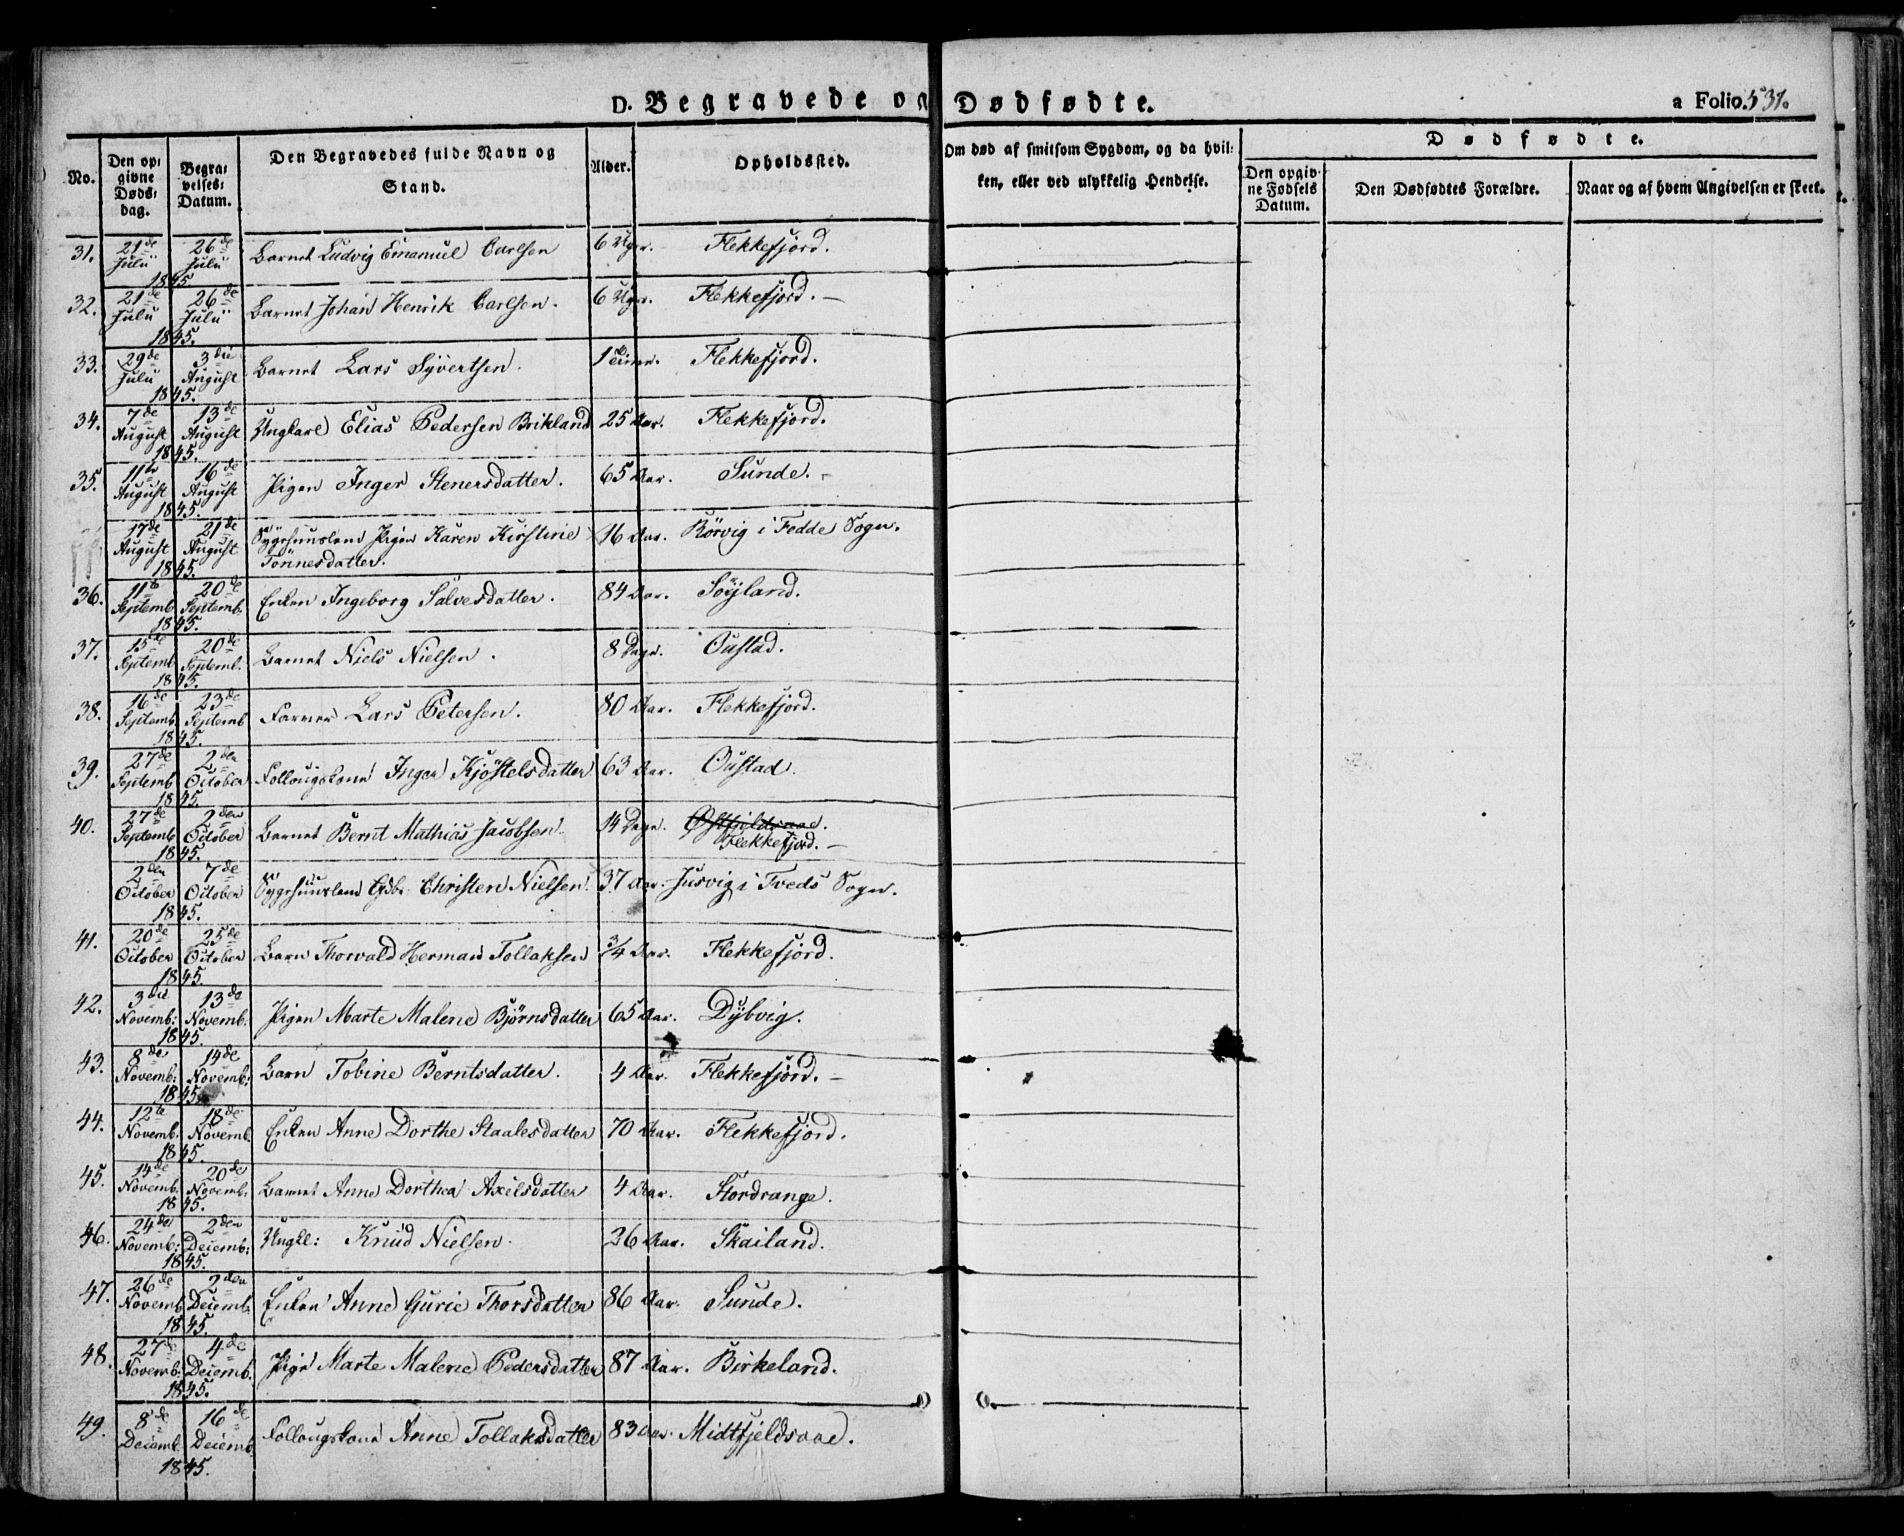 D. Begravede og Dødfødte. a Folio 531.
No. Den opgivne Dødsdag. Begravelses: Datum. Den Begravedes fulde Navn og Stand. Alder. Opholdssted. Om død af smitsom Sygdom, og da hvilken, eller ved ulykkelig Hendelse. Dødfødte.
Den opgivne Fødsels Datum. Den Dødfødtes Forældre. Naar og af hvem Angivelsen er skeet.
31. 21de Julii 26de Julii 1845 Barnet Ludvig Emanuel Carlsen 6 Uger. Flekkefjord.
32. 21de Julii 26de Julii 1845. Barnet Johan Henrik Carlsen. 6 Uger. Flekkefjord. –
33. 29de Julii 3die August 1845. Barnet Lars Syvertsen. 1 Flekkefjord.
34. 7de August 13de August 1845. Ungkarl Elias Pedersen Brikland 25 Aar. Flekkefjord.
35. 11te August 16de August 1845. Pigen Inger Stenersdatter. 65 Aar. Sunde. –
17de August 21de August 1845. Sygehuuslem Pigen Karen Kirstine Tönnesdatter. 16 Aar. Rörvig i Fedde Sogn.
36. 11te Septemb. 20de Septemb. 1845. Enken Ingeborg Salvesdatter. 84 Aar. Söyland.
37. 15de Septemb. 20de Septemb. 1845. Barnet Niels Nielsen. 8 Dage. Oustad.
38. 16de Septemb. 23de Septemb 1845. Farver Lars Petersen. 80 Aar. Flekkefjord.
39. 27de Septemb. 2den October 1845. Follougskone Inger Kjöstelsdatter 63 Aar. Oustad.
40. 27de Septemb 2den October 1845. Barnet Bernt Mathias Jacobsen. 14 Dage. Østfjeldsaae. Flekkefjord. –
2den October 7de October 1845. Sygehuuslem Christen Nielsen. 37 Aar. Jusvig i Tveds Sogn.
41. 20de October 25de October 1845. Barn Thorvald Herman Tollaksen 3/4 Aar. Flekkefjord.
42. 3die Novemb: 13de Novemb. 1845. Pigen Marte Malene Bjørnsdatter 65 Aar. Dybvig.
43. 8de Novemb: 14de Novemb: 1845. Barn Tobine Berntsdatter. 4 Aar. Flekkefjord. –
44. 12te Novemb. 18de Novemb. 1845. Enken Anne Dorthe Staalesdatter 70 Aar. Flekkefjord.
45. 14de Novemb. 20de Novemb. 1845. Barnet Anne Dorthea Axelsdatter 4 Aar. Stordrange.
46. 24de Novemb: 2den Decemb: 1845. Ungk: Knud Nielsen. 26 Aar. Skailand.
47. 26de Novemb 2den Decemb. 1845. Enken Anne Gurie Thorsdatter 86 Aar. Sunde.
48. 27de Novemb. 4de Decemb. 1845. Pige Marte Malene Pedersdatter 87 Aar. Birkeland.
49. 8de Decemb 16de Decemb 1845. Follougskone Anne Tollaksdatter 83 Aar. Midtfjeldsaae.